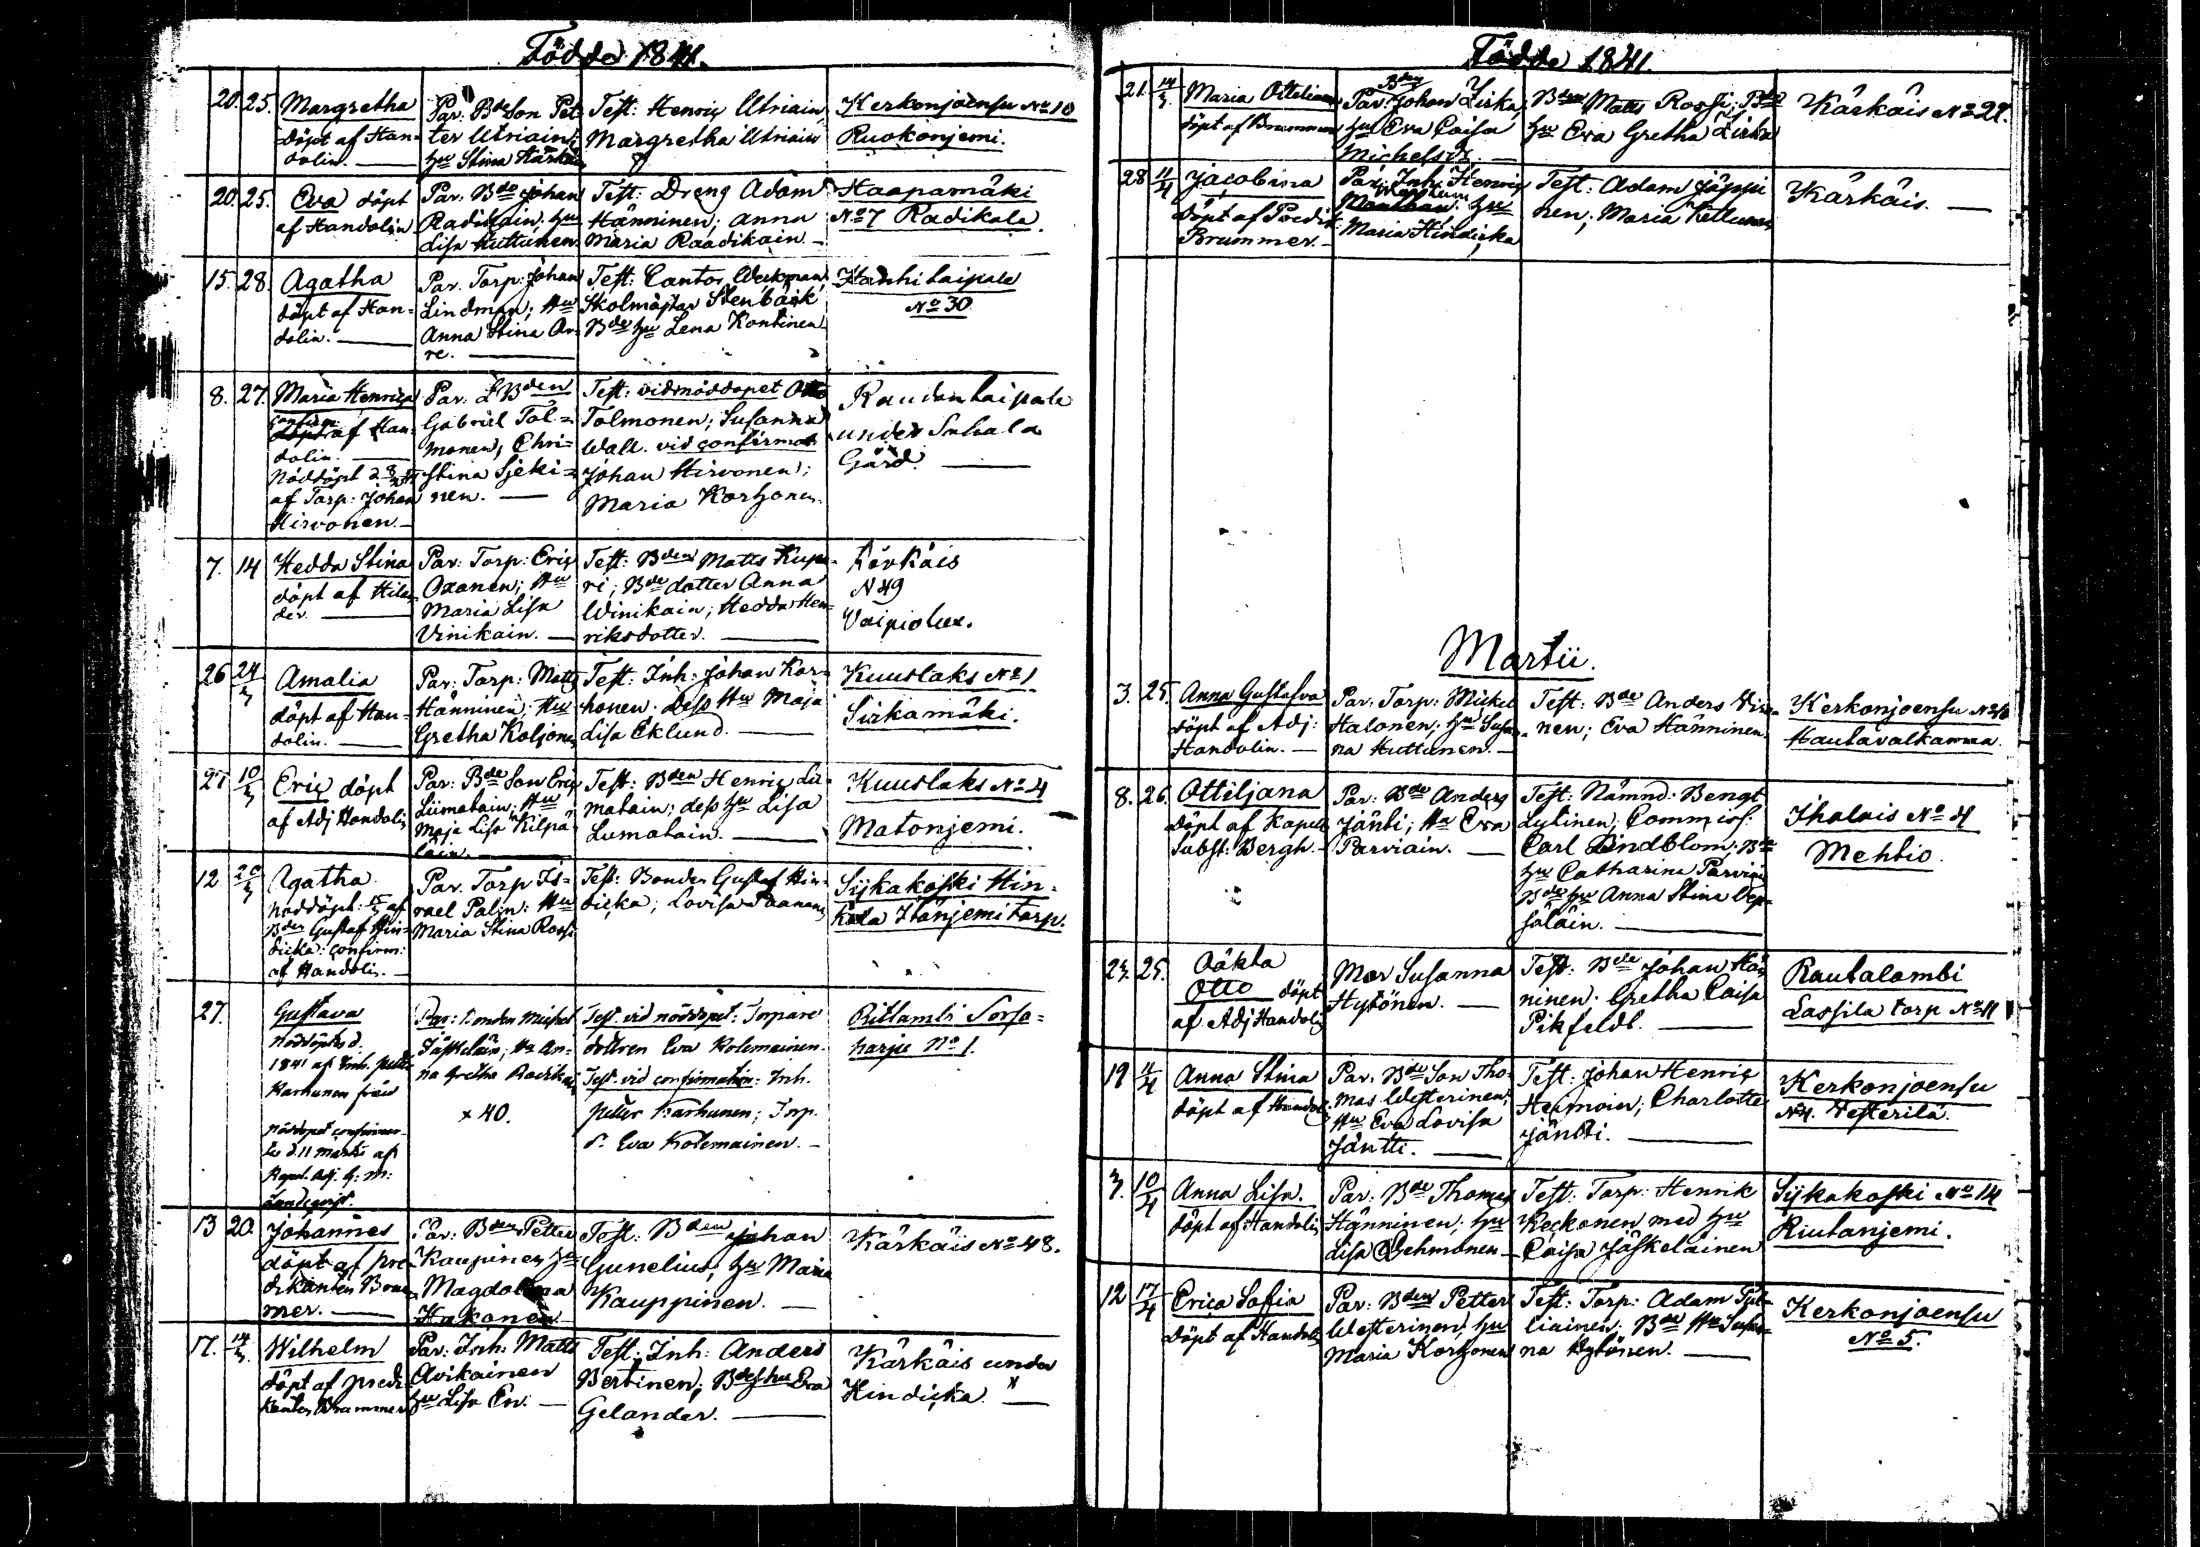 Födde 1841.
20. 25. Margretha
döpt af Han-
dolin.
Par. Bde Son Pet-
ter Utriain;
hu Stina Kärkäin
Test: Henric Utriain,
Margretha Utriain
Kerkonjoensu No 10
Ruokonjemi.
20. 25. Eva döpt
af Handolin
Par. Bde Johan
Radikain; hu
Lisa Huttunen
Test: Dreng Adam
Hänninen; Anna
Maria Raadikain.
Haapamäki
No 7 Radikala.
15. 28. Agatha
döpt af Han-
dolin.
Par. Torp: Johan
Lindman; Hu
Anna Stina Au-
re.
Test: Cantor Weckman,
Skolmästar Stenbäck
Bde hu Lena Kontinen
Hanhitaipale
No 30.
8. 27. Maria Henrica
confirm.
döpt af Han-
dolin.
Nöddöpt d. 8/2
af Torp: Johan
Hirvonen.
Par. LBden
Gabriel Tol-
monen; Chri-
stina Sjeki-
nen.
Test: vid nöddopet Otto
Tolmonen; Susanna
Wall. vid confirmat
Johan Hirvonen;
Maria Korhonen.
Raudantaipale
under Suhala
Gård.
7. 14 Hedda Stina
döpt af Hilen-
der.
Par: Torp: Eric
Oxanen; Hu
Maria Lisa
Vinikain.
Test: Bden Matts Kupa-
ri; Bde dotter Anna
Winikain; Hedda Hen-
riksdotter.
Kärkäis
N 49
Vaipiolux.
26 24/3 Amalia
döpt af Han-
dolin.
Par: Torp: Matts
Hänninen; Hu
Gretha Kolhonen
Test: Inh: Johan Kor-
honen. Dess Hu Maja
Lisa Eklund.
Kuuslaks No 1
Sirkamäki.
27 10/3 Eric döpt
af Adj Handolin
Par: Bde Son Eric
Liimatain; Hu
Maja Lisa Kilpä-
läin.
Test: Bden Henric Lii-
matain; dess hu Lisa
Lumatain.
Kuuslaks No 4
Matonjemi.
12 20/3 Agatha
Nöddöpt: af
Bden Gustaf Hin-
dicka: confirm:
af Handolin.
Par. Torp Is-
rael Palin: Hu
Maria Stina Rossi
Test: Bonden Gustaf Hin-
dicka; Lovisa Paananen
Sijkakoski Hin-
kala Hänjemi torp.
27. Gustava
Nöddöptes d.
1841 af Inh. Petter
Karhunen från
nöddopet confirmer-
tes d. 11 Martii af
Kapel. Adj. G. M:
Landeqvist.
Par: Bonden Michel
Jäskeläin; Hu An-
na Gretha Radikai
x 40.
Test. vid nöddopet: Torpare
dottren Eva Kolemainen.
Test. vid confirmation: Inh.
Petter Karhunen; Torp.
d. Eva Kolemainen.
Pitlambi Sorsa-
harju No 1.
13 20. Johannes
döpt af pre-
dikanten Brum-
mer.
Par: Bden Petter
Kaupinen hu
Magdalena
Hakonen
Test: Bden Johan
Gunelius; hu Maria
Kauppinen.
Kärkäis No 48.
17. 14/3 Wilhelm
döpt af predi-
kanten Brummer
Par: Inh: Matts
Avikainen
hu Lisa En.
Test: Inh: Anders
Bertinen; Bdes hu Eva
Gelander.
Kärkäis under
Hindicka. x
Födde 1841.
21. 14/3. Maria Ottiliana
döpt af Brummer
Bden
Par: Johan Lirka,
hu Eva Caisa
Michelsdr.
Bden Matts Rossi; Bde
hu Eva Gretha Lirka
Kärkäis No 27.
28 11/4 Jacobina
döpt af Predik
Brummer.
Par: Inh. Henric
hu
Maria Hindicka
Test: Adam Jäppi-
nen; Maria Kettunen
Kärkäis.
Martii.
3. 25. Anna Gustafva
döpt af Adj:
Handolin.
Par: Torp: Mickel
Halonen; hu Susa-
na Huttunen.
Test: Bde Anders
nen; Eva Hänninen
Kerkonjoensu No 10
Hautavalkama.
8. 26. Ottiljana
döpt af Kapells
Subst: Bergh.
Par: Bde Anders
Jänti; Hu Eva
Parviain.
Test: Nämnd: Bengt
Lytinen; Commiss:
Carl Lindblom; Bde
hu Catharina Parviain
Bde hu Anna Stina Vep-
säläin.
Ihalais No 4
Mehtio.
23. 25. Oäkta
Otto döpt
af Adj Handolin
Mor Susanna
Hytönen.
Test: Bde Johan Hän-
ninen. Gretha Caisa
Pikfeldt.
Rautalambi
Lassila torp No 11
19 11/4 Anna Stina
döpt af Handolin
Par. Bde Son Tho-
mas Westerinen,
Hu Eva Lovisa
Jäntti.
Test: Johan Henric
Heimoin; Charlotte
Jäntti.
Kerkonjoensu
N 4. Vesterilä.
3. 10/4 Anna Lisa.
döpt af Handolin
Par: Bde Thomas
Hänninen; hu
Lisa Lehmonen
Test: Torp: Henrik
Keckonen med hu
Caisa Jäskeläinen
Sijkakoski No 14
Riutanjemi.
12 17/4 Erica Sofia
döpt af Handolin
Par: Bden Petter
Westerinen; hu
Maria Korhonen
Test: Torp: Adam Tul-
liainen. Bde Hu Susa-
na Hytönen.
Kerkonjoensu
No 5.